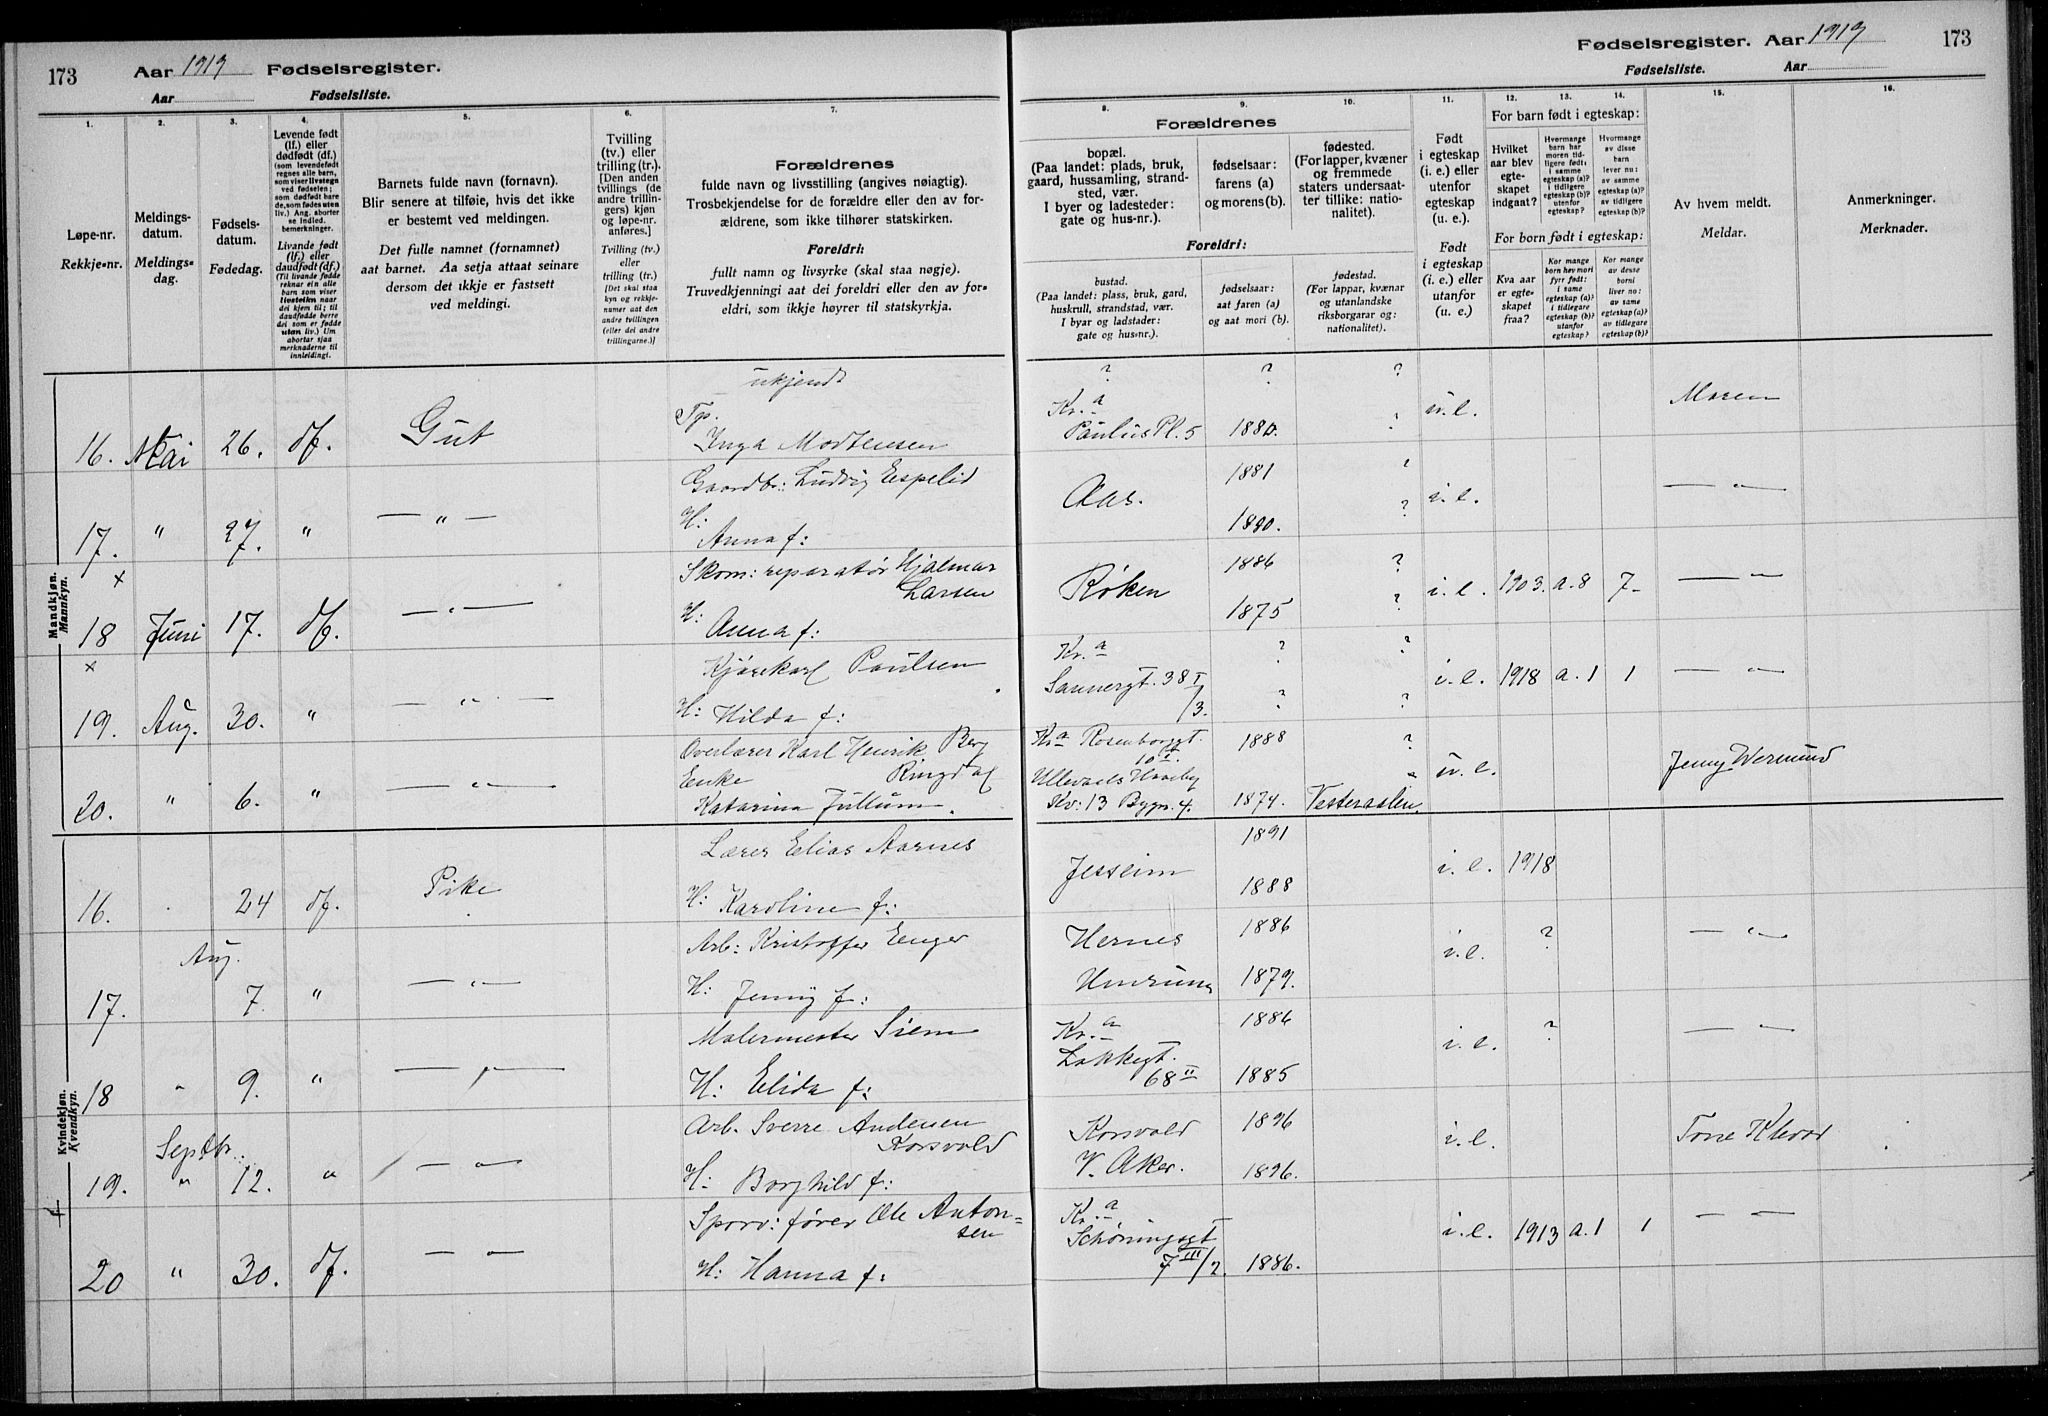 173 Aar 1919 Fødselsregister.
Aar Fødselsliste.
1. 2. 3. 4. 5. 6. 7.
Løpe-nr.
Rekkje-nr.
Meldings-
datum.
Meldings-
dag.
Fødsels-
datum.
Fødedag.
Levende født
(lf.) eller
dødfødt (df.)
(som levendefødt
regnes alle barn,
som viser livstegn
ved fødselen;
som dødfødt bare
de, som fødes uten
liv.) Ang. aborter
se Indled.
bemerkninger.
Livande født
(lf.) eller
daudfødt (df.)
(Til livande fødde
reknar ein alle
born som viser
livsteikn naar
dei kjem til; til
daudfødde berre
dei som er fødde
utan liv.) Um
abortar sjaa
merknaderne til
innleidingi.
Barnets fulde navn (fornavn).
Blir senere at tilføie, hvis det ikke
er bestemt ved meldingen.
Det fulle namnet (fornamnet)
aat barnet. Aa setja attaat seinare
dersom det ikkje er fastsett
ved meldingi.
Tvilling
(tv.) eller
trilling (tr.).
[Den anden
tvillings (de
andre trillin-
gers) kjøn
og løpe-nr.
anføres.]
Tvilling (tv.)
eller
trilling (tr.)
[Det skal staa
kyn og rekkje-
numer aat den
andre tvillingen
(eller dei andre
trillingarne.)]
Forældrenes
fulde navn og livsstilling (angives nøiagtig).
Trosbekjendelse for de forældre eller den av for-
ældrene, som ikke tilhører statskirken.
Foreldri:
fullt namn og livsyrke (skal staa nøgje).
Truvedkjenningi aat dei foreldri eller den av for-
eldri, som ikkje høyrer til statskyrkja.
Fødselsregister. Aar 1919 173
Fødselsliste. Aar
8. 9. 10. 11. 12. 13. 14. 15. 16.
Forældrenes
bopæl.
(Paa landet: plads, bruk,
gaard, hussamling, strand-
sted, vær.
I byer og ladesteder:
gate og hus-nr.).
fødselsaar:
farens (a)
og morens (b).
fødested.
(For lapper, kvæner
og fremmede
staters undersaat-
ter tillike: natio-
nalitet).
Foreldri:
bustad.
(Paa landet: plass, bruk, gard,
huskrull, strandstad, vær.
I byar og ladstader:
gate og hus-nr.).
fødselsaar:
aat faren (a)
og aat mori (b).
fødestad.
(For lappar, kvænar
og utanlandske
riksborgarar og:
nationalitet).
Født
i egteskap
(i. e.) eller
utenfor
egteskap
(u. e.).
Født
i egteskap
(i. e.) eller
utanfor
(u. e.)
For barn født i egteskap:
Hvilket
aar blev
egte-
skapet
indgaat?
Hvormange
barn har
moren tid-
ligere født:
i samme
egteskap (a)?
i tidligere
egteskap (b)?
utenfor
egteskap?
Hvormange
av disse
barn
lever nu:
av samme
egteskap (a)?
av tidligere
egteskap (b)?
For born født i egteskap:
Kva aar
er egte-
skapet
fraa?
Kor mange
born hev mori
fyrr født:
i same
egteskap (a)?
i tidlegare
egteskap (b)?
utanfor
egteskap?
Kor mange
av desse
borni
liver no:
av same
egteskap (a)?
av tidlegare
egteskap (b)?
Av hvem meldt.
Meldar.
Anmerkninger.
Merknader.
Mandkjøn.
Mannkyn.
ukjendt ? ? ?
16. Mai 26. df. Gut Tp. Inga Mortensen Kr.a Paulus Pl. 5 1880. ? u.e. Moren
Gaardbr: Ludvig Espelid 1881 ?
17. " 27. " — " — H: Anna f: Aas. 1890. ? i.e. — " —
x
Skom: reparatør Hjalmar Larsen 1886 ?
18 Juni 17. df. — " — H: Anna f: Røken 1875 ? i.e. 1903. a. 8 7- — " —
x
Kjørekarl Paulsen Kr.a ? ?
19. Aug. 30. " — " — H: Hilda f: Sannergt. 38 I/3. ? ? i.e. 1918 a. 1 1 — " —
Overlærer Karl Henrik Berg Kr.a Rosenborggt. 10 1888 ?
20. " 6. " — " — Enke Katarina Jullum Ringdal Ullevaals Haveby Kv: 13 Bygn. 4. 1874. Vesteraalen. u.e. Jenny Wermund
Kvindekjøn.
Kvendkyn.
Lærer Elias Aarnes 1891
16. 24 df. Pike H: Karoline f: Jessheim 1888 i.e. 1918
Arb: Kristoffer Enger Hernes 1886
17. Aug. 7. " — " — H: Jenny f: 1879. i.e. ? — " —
Malermester Siem Kr.a 1886
18 " 9. " — " — H: Elida f: Lakkegt. 68 II 1885 i.e. ? — " —
Arb. Sverre Andersen Korsvold Korsvold 1896
19. Septbr. " 12. " — " — H: Borghild f: V. Aker. 1896. i.e. Tone Klevar
Sporv: fører Ole Anton=sen Kr.a
20 " 30. df. — " — H: Hanna f: Schøningsgt 7 III/2. 1886. i.e. 1913 a. 1 1 — " —